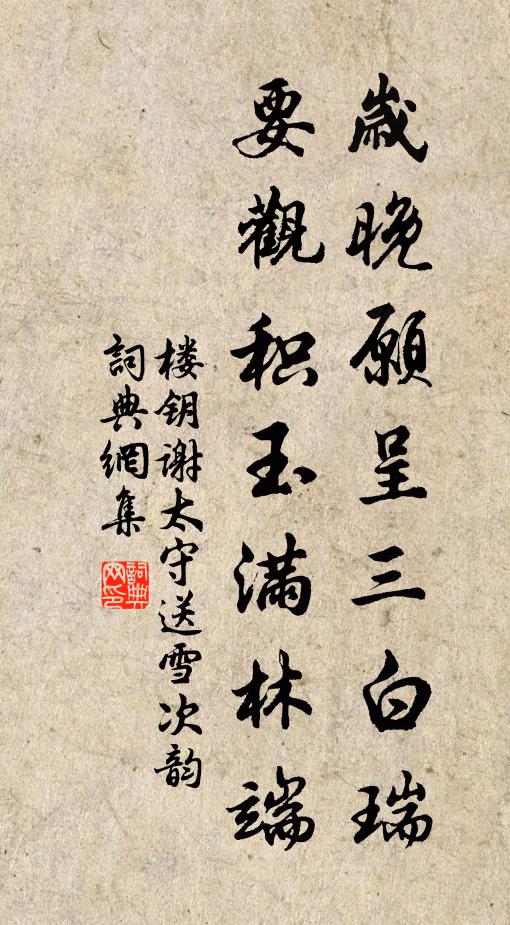 歲晚願呈三白瑞
要觀积玉满林端
楼钥谢太守送雪次韵
詞典網集
詞典网印